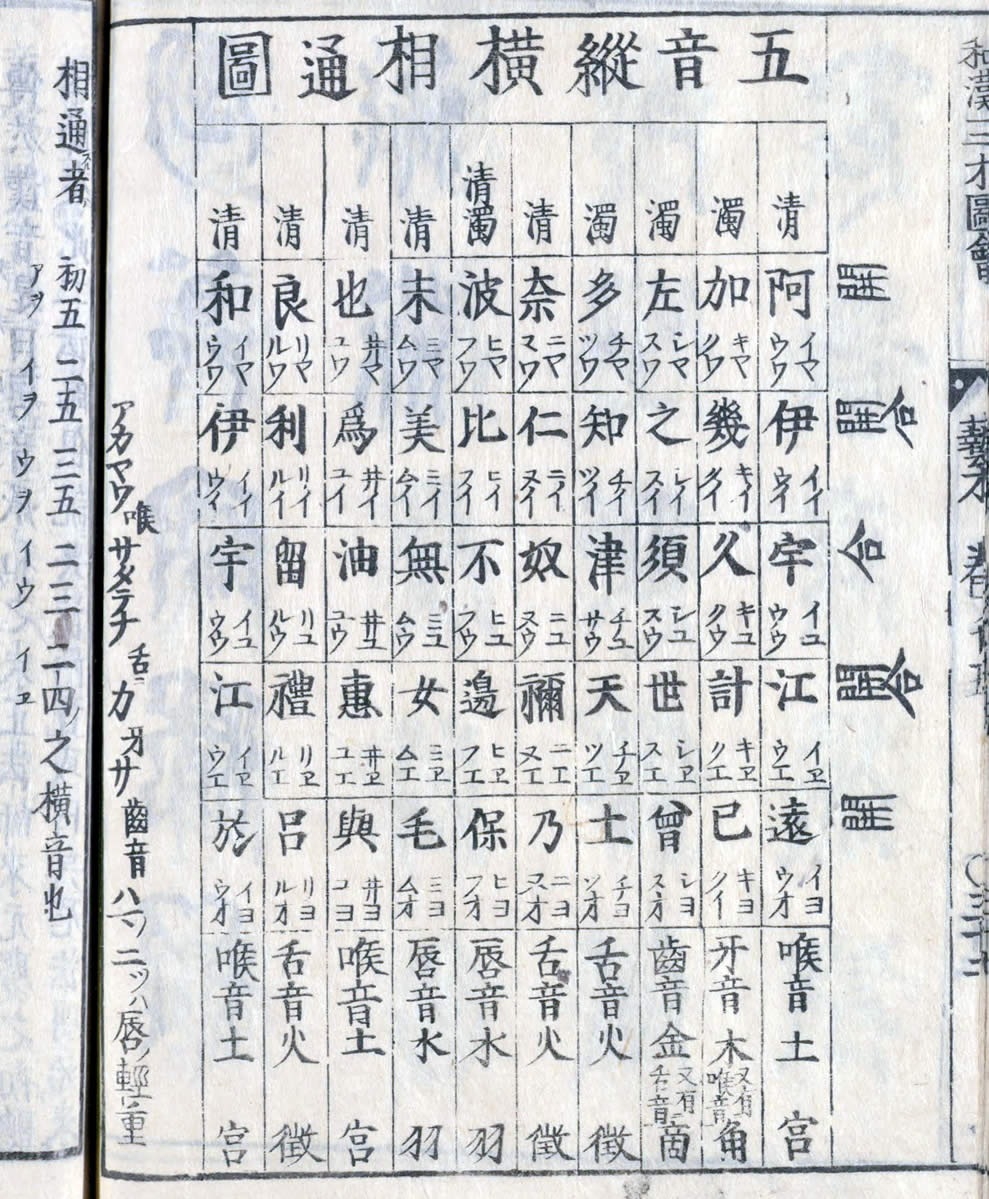 和漢三才圖會
五音縱橫相通圖
開 開合 合 開合 開
清 阿 イヤ ウワ 伊 イイ ウイ 宇 イユ ウウ 江 イヱ ウエ 遠 イヨ ウオ 喉音土 宮
濁 加 キヤ クワ 幾 キイ クイ 久 キユ クウ 計 キヱ クエ 已 キヨ クイ 牙音木 又有喉音 角
濁 左 シヤ スワ 之 シイ スイ 須 シユ スウ 世 シヱ スエ 曾 シヨ スオ 齒音金 又有舌音 商
濁 多 チヤ ツワ 知 チイ ツイ 津 チユ サウ 天 チヱ ツエ 土 チヨ ツオ 舌音火 徵
清 奈 ニヤ ヌワ 仁 ニイ ヌイ 奴 ニユ ヌウ 禰 ニエ ヌエ 乃 ニヨ ヌオ 舌音火 徵
清濁 波 ヒヤ フワ 比 ヒイ フイ 不 ヒユ フウ 邊 ヒヱ フエ 保 ヒヨ フオ 唇音水 羽
清 末 ミヤ ムワ 美 ミイ ムイ 無 ミユ ムウ 女 ミヱ ムエ 毛 ミヨ ムオ 唇音水 羽
清 也 井ヤ ユワ 爲 井イ ユイ 油 井ユ ユウ 惠 井ヱ ユエ 與 井ヨ ユヨ 喉音土 宮
清 良 リヤ ルワ 利 リイ ルイ 留 リユ ルウ 禮 リヱ ルエ 呂 リヨ ルオ 舌音火 徵
清 和 イヤ ウワ 伊 イイ ウイ 宇 イユ ウウ 江 イヱ ウエ 於 イヨ ウオ 喉音土 宮
アカヤワ喉 サタラナ舌 カ牙サ齒音ハマノ二ツハ唇ノ輕重
相通者ハ 初五アヲ 二五イヲ 三五ウヲ 二三イウ 二四イヱノ之橫音也